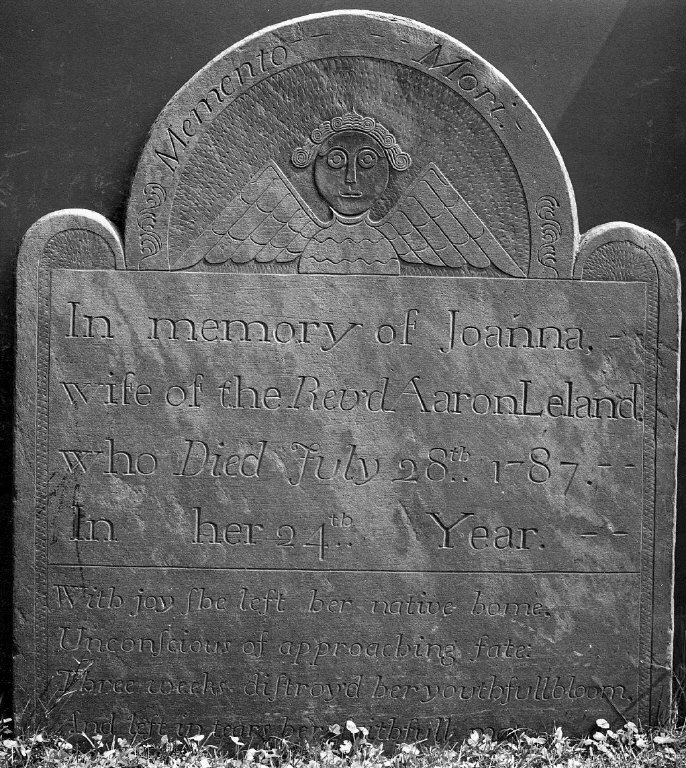 Memento Mori.
In memory of Joanna,
wife of the Revd Aaron Leland,
who Died July 28th 1787.
In her 24th Year.
With joy ſhe left her native home,
Unconſcious of approaching fate:
Three weeks diſtroy'd her youthfull bloom,
And left in tears her